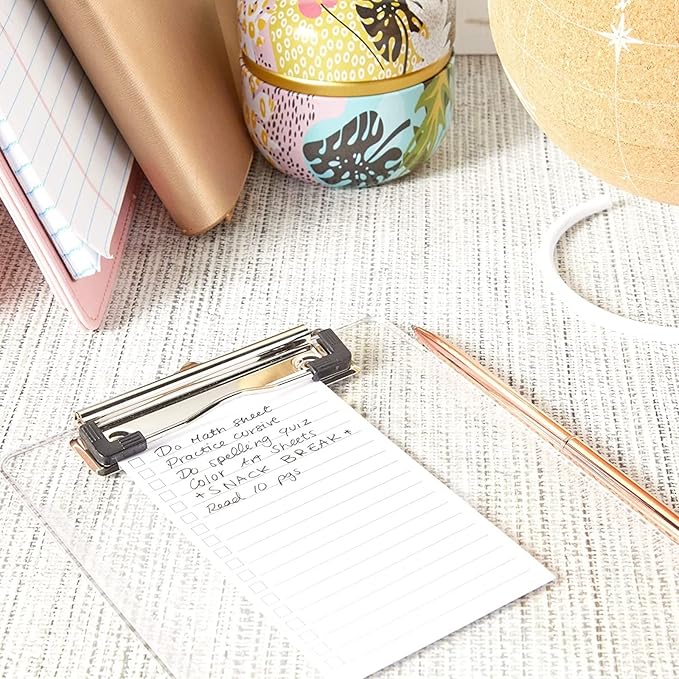 Do Math Sheet
Practice cursive
Do spelling quiz
Color Art Sheets
+ SNACK BREAK +
Read 10 pgs